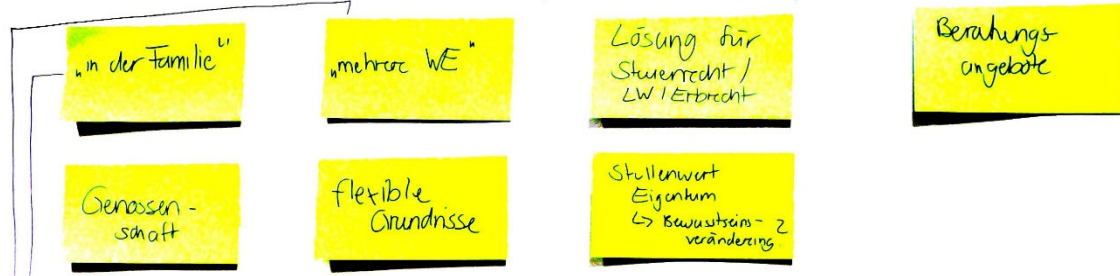 „in der Familie"
„mehrere WE"
Lösung für
Steuerrecht /
LW / Erbrecht
Beratungs-
angebote
Genossen-
schaft
flexible
Grundrisse
Stellenwert
Eigentum
↳ Bewusstseins-
veränderung ?